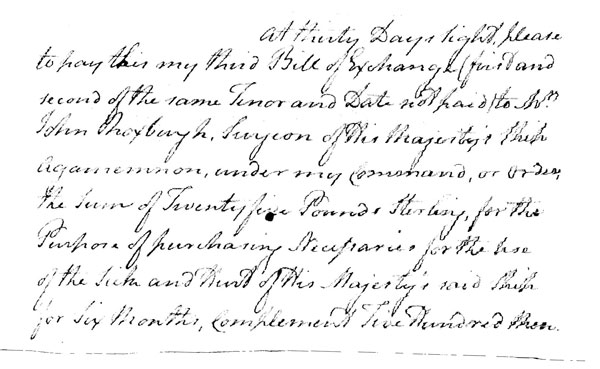 At thirty Days sight, please
to pay this my third Bill of Exchange (first and
second of the same Tenor and Date not paid) to Mr.
John Roxburgh, Surgeon of His Majesty's Ship
Agamemnon, under my Command, or order,
the Sum of Twenty five Pounds Sterling, for the
Purpose of purchasing Necessaries for the Use
of the Sick and Hurt of His Majesty's said Ship
for Six Months, Complement Five Hundred Men.